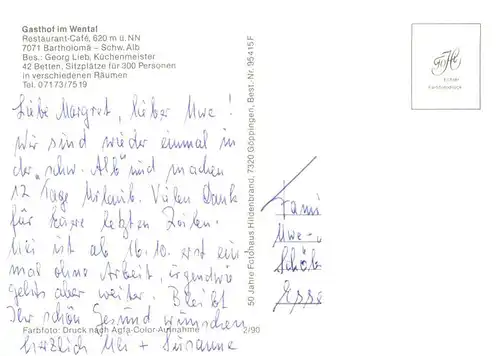 Gasthof im Wental
Restaurant-Café, 620 m ü. NN
7071 Bartholomä – Schw. Alb
Bes.: Georg Lieb, Küchenmeister
42 Betten, Sitzplätze für 300 Personen
in verschiedenen Räumen
Tel. 07173/7519
Liebe Margret, lieber Uwe!
Wir sind wieder einmal in
der „schw. Alb" und machen
12 Tage Urlaub. Vielen Dank
für eure letzten Zeilen.
Uli ist ab 16.10. erst ein
mal ohne Arbeit, irgendwie
gehts aber weiter. Bleibt
Ihr schön Gesund wünschen
herzlich Uli + Susanne
Farbfoto: Druck nach Agfa-Color-Aufnahme 2/90
50 Jahre Fotohaus Hildenbrand, 7320 Göppingen, Best.-Nr. 95415F
Fami
Uwe
Schöb
Eppe